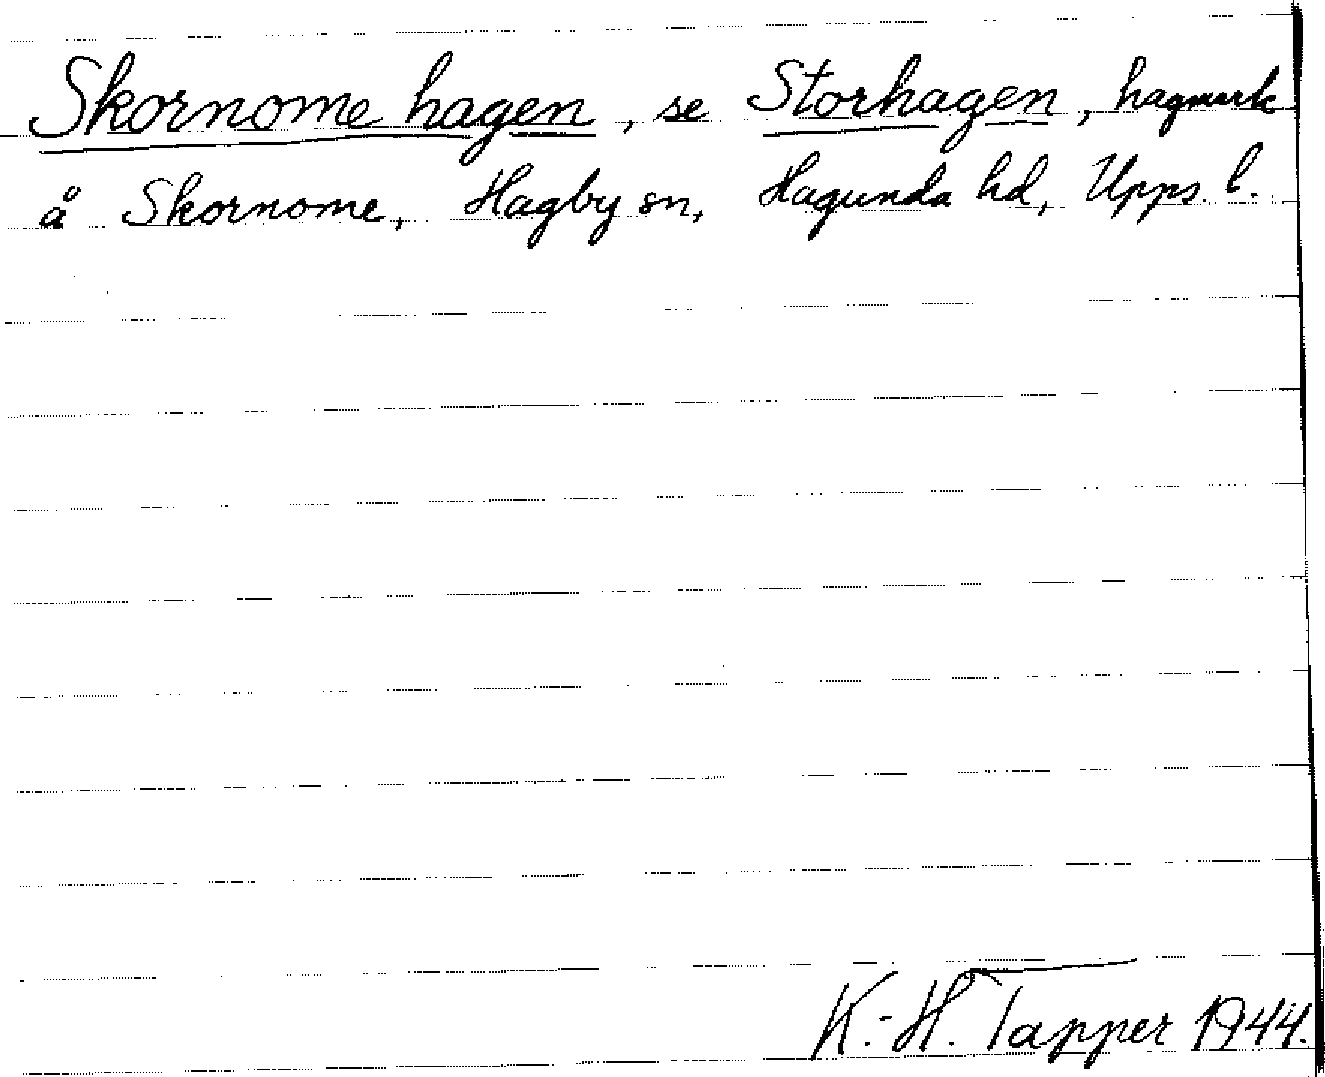 Skornome hagen, se Storhagen, hagmark
å Skornome, Hagby sn, Hagunda hd, Upps. l.
K.-H. Tapper 1944.